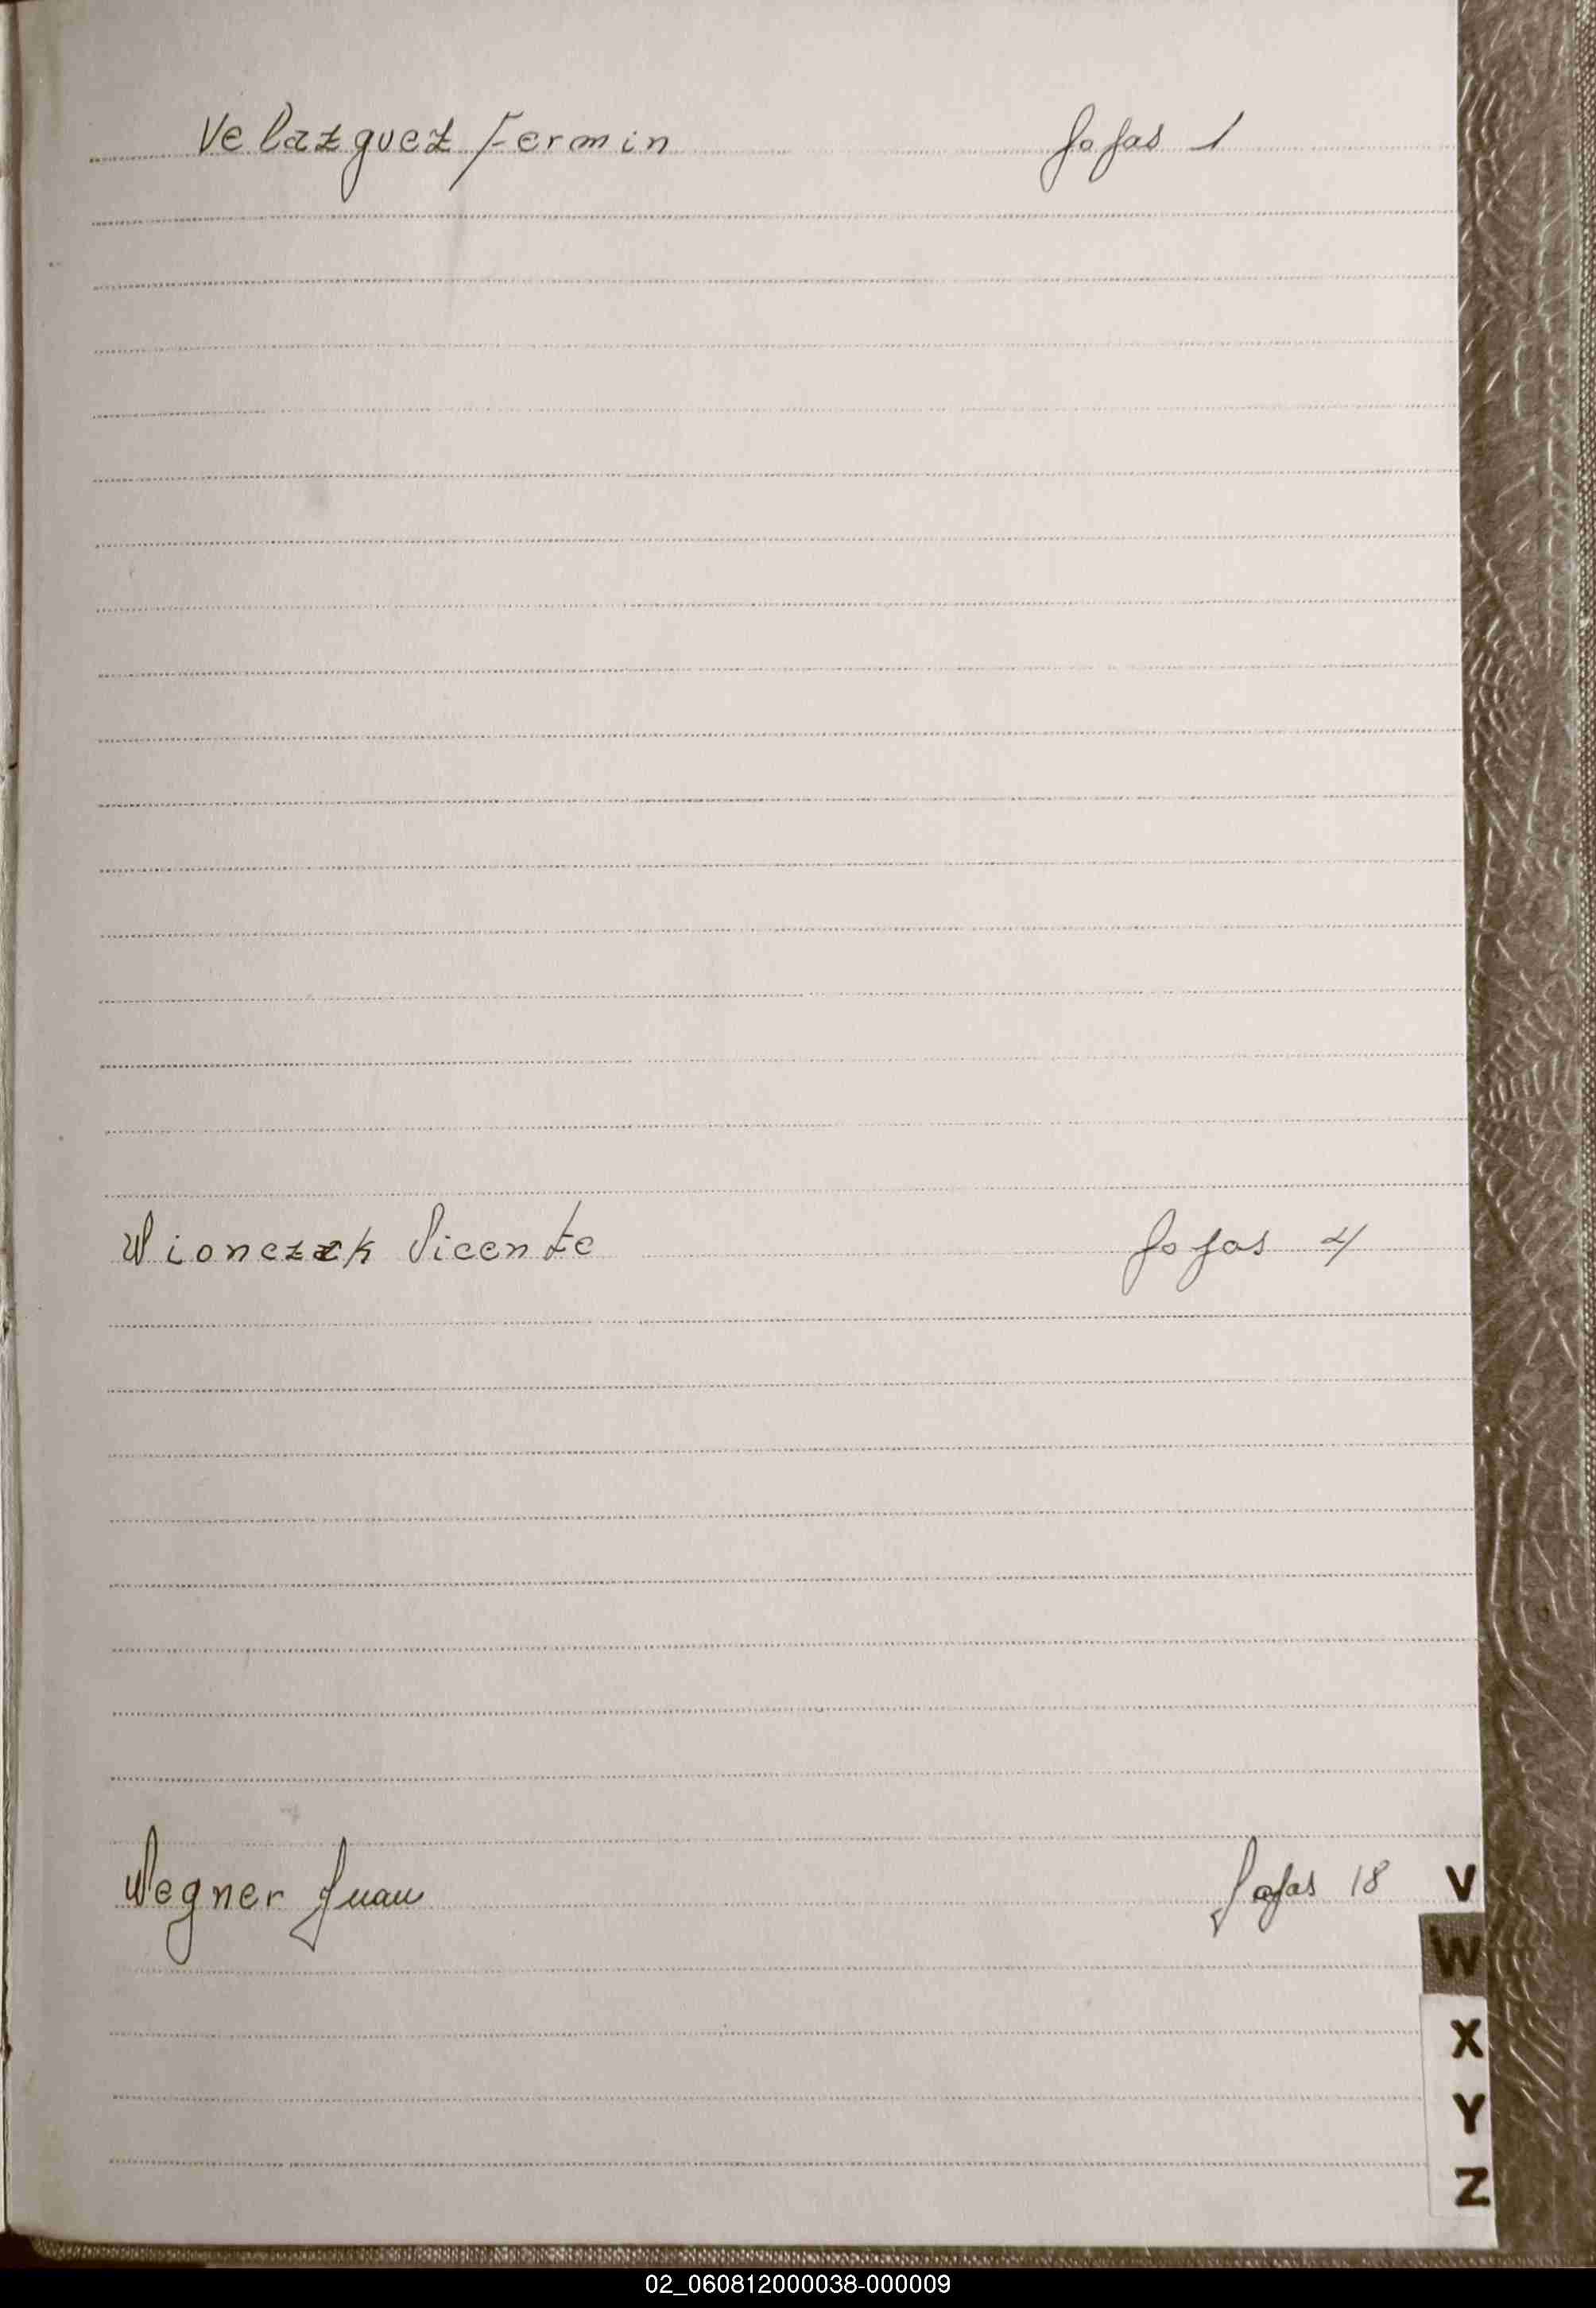 Velazquez Fermin fojas 1
Wionczek Vicente fojas 4
Wegner Juan fojas 18
V
W
X
Y
Z
02_060812000038-000009